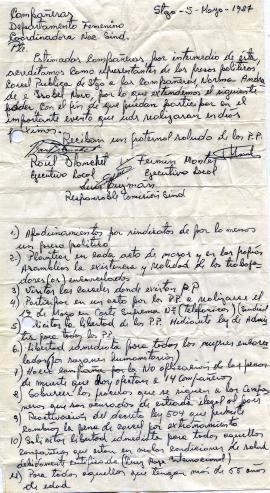 Compañeras Stgo - 5 - Mayo - 1987
Departamento Femenino
Coordinadora Nac Sind.
Pte.
Estimadas compañeras por intermedio de ésta,
acreditamos como representantes de los presos políticos
carcel Publica de Stgo a las compañeras Norma
e Isabel por lo que extendemos el siguiente
poder con el fin de que puedan participar en el
importante evento que uds realizaran en dias
proximos.
Reciban un fraternal saludo de los P.P.
Raúl Blanchet Fermin Montes
Ejecutivo Local Ejecutivo Local
Luis Guzman
Responsable Comision Sind
1.) por sindicatos de por lo menos
un preso politico
2.) Plantear en cada acto de masas y en las propias
Asambleas la existencia y realidad de los trabaja-
dores(as) encarcelados
3) Visitar las carceles donde existen P.P
4) Participar en un acto por los P.P a realizarse el
de Mayo en Corte Suprema
5) Solicitar la libertad de los P.P. Mediante ley de Amnis
tia para todos los P.P
6) Libertad inmediata para todas las mujeres encarce
ladas (por razones humanitarias)
7) Hacer campaña por la NO aplicacion de las penas
de muerte que hoy afectan a 14 compañeros
8) los procesos que se siguen a los Compa
ñeros que son acusados de entrada ilegal al pais
9) Reactivacion del decreto ley 504 que permite
cambiar la pena de carcel por extrañamiento
10) Solicitar libertad inmediata para todos aquellos
compañeros que estan en malas condiciones de salud
debidamente certificado (Cruz Roja Internacional)
11) Para todos aquellos que tengan mas de 55 años
de edad